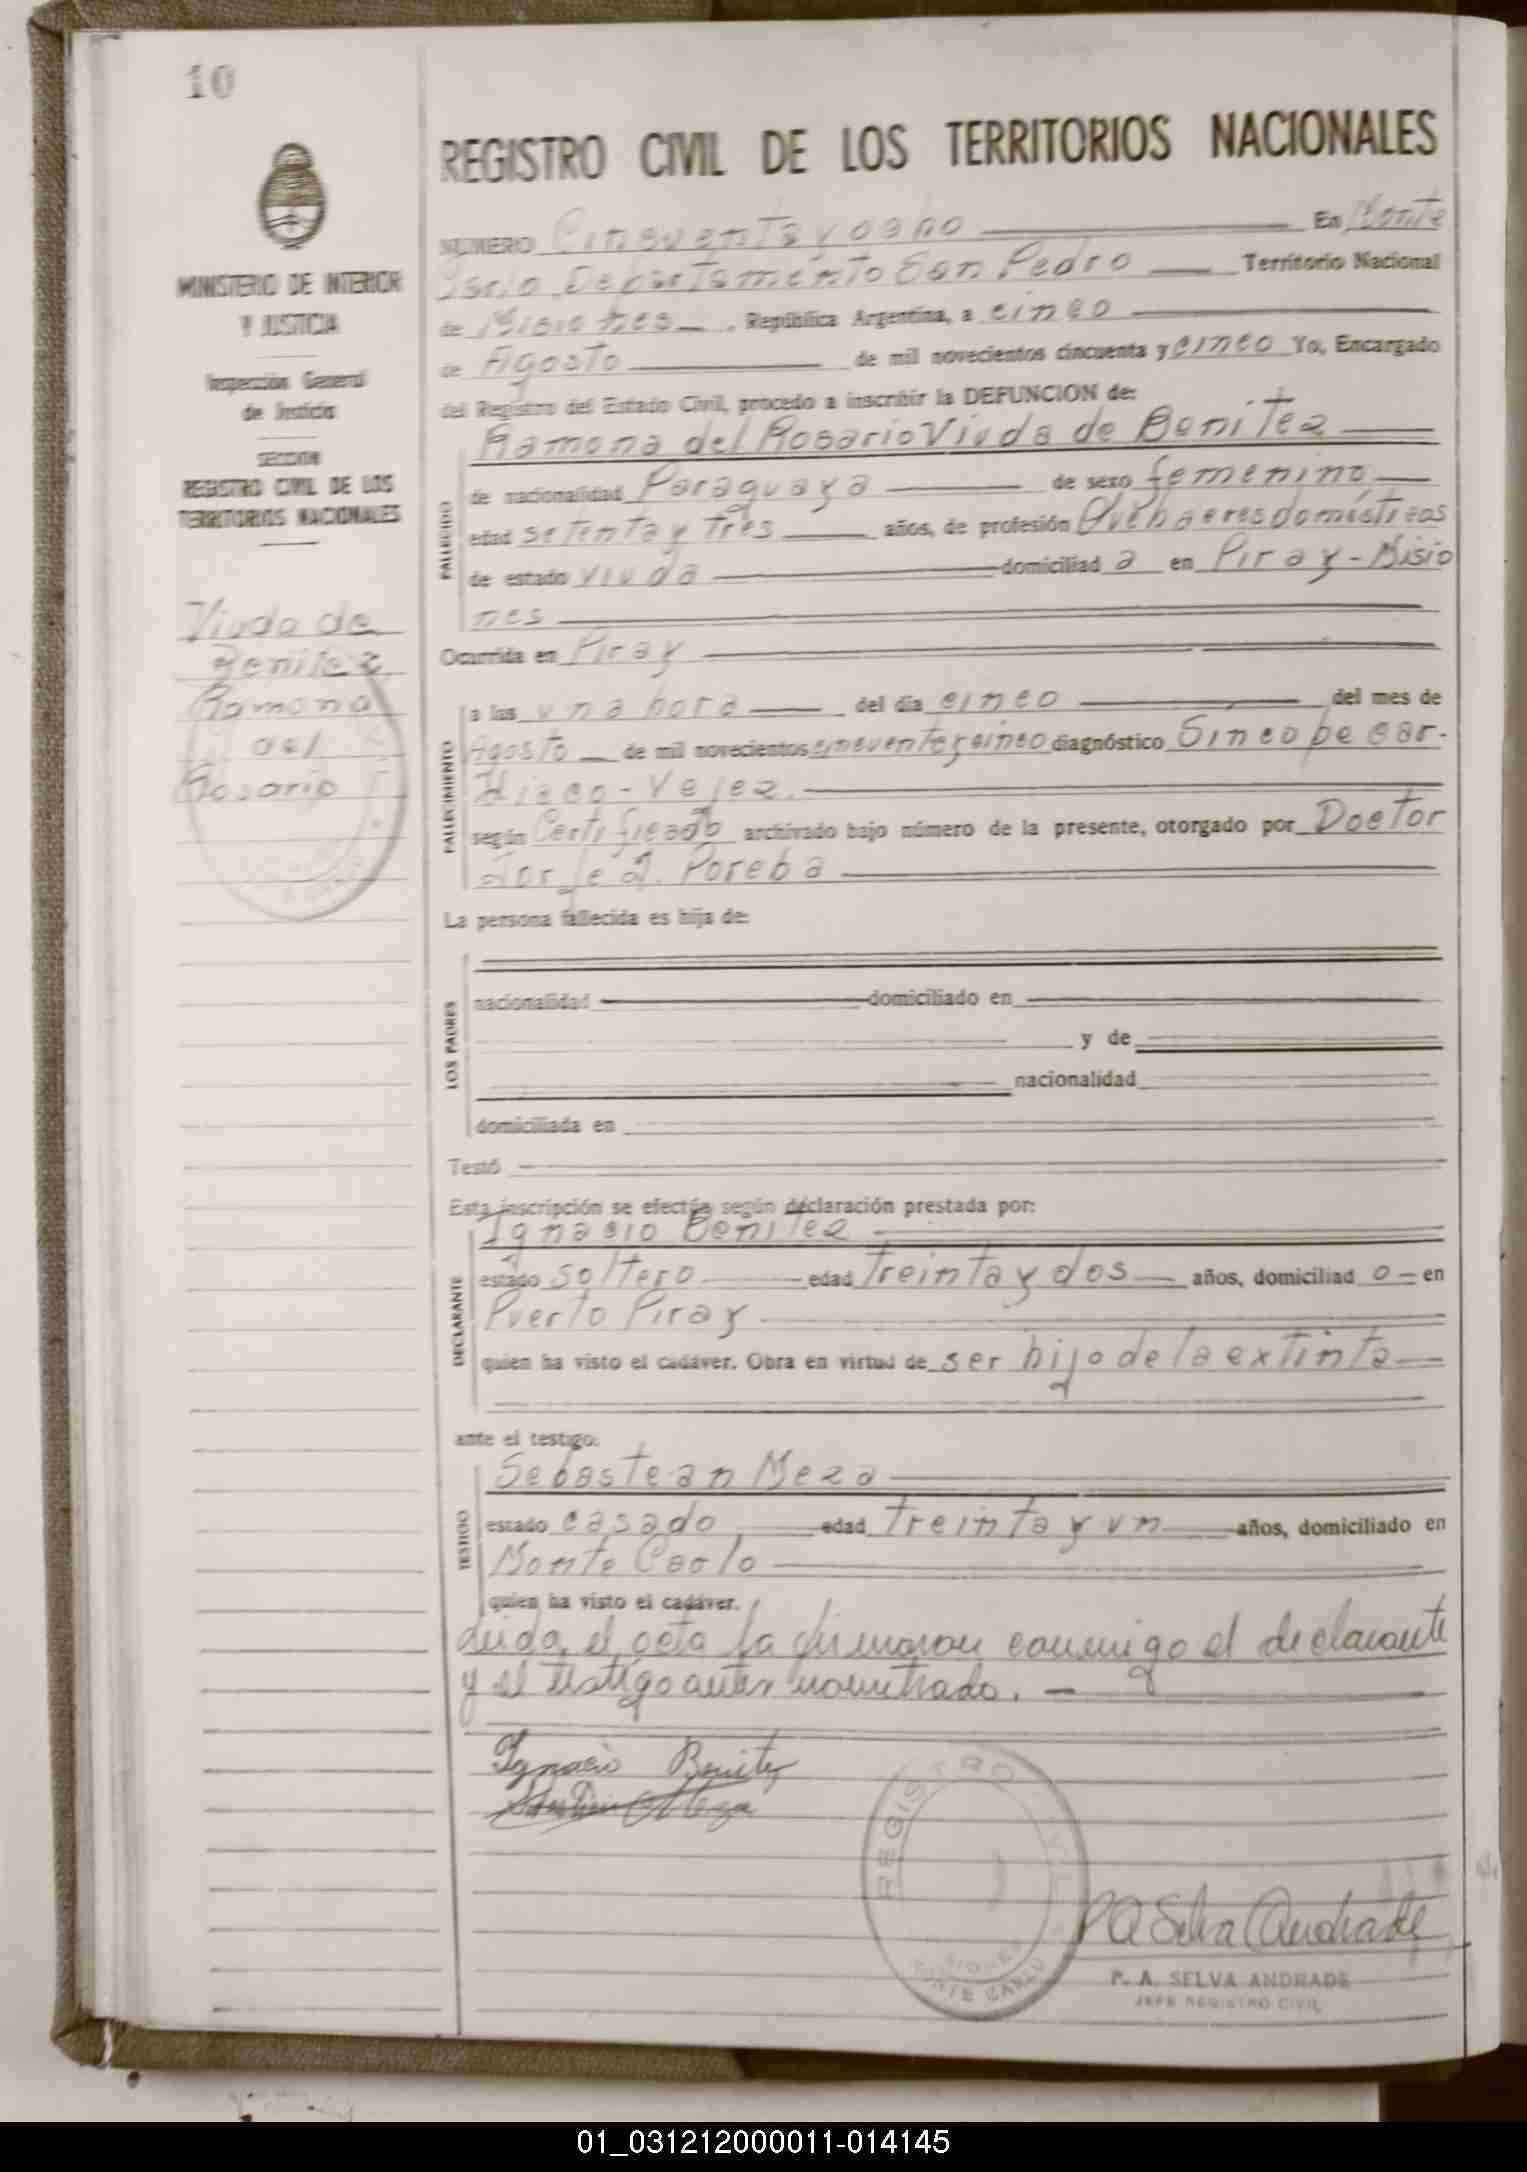 10
REGISTRO CIVIL DE LOS TERRITORIOS NACIONALES
MINISTERIO DE INTERIOR
Y JUSTICIA
Inspección General
de Justicia
SECCION
REGISTRO CIVIL DE LOS
TERRITORIOS NACIONALES
Viuda de
Benitez
Ramona
del
Rosario
NUMERO Cincuenta y ocho En Monte
Carlo Departamento San Pedro Territorio Nacional
de Misiones, República Argentina, a cinco
de Agosto de mil novecientos cincuenta y cinco Yo, Encargado
del Registro del Estado Civil, procedo a inscribir la DEFUNCION de:
Ramona del Rosario Viuda de Benitez
FALLECIDO
de nacionalidad Paraguaya de sexo femenino
edad setenta y tres años, de profesión Quehaceres domésticos
de estado viuda domiciliad a en Piray - Misio
nes
Ocurrida en Piray
FALLECIMIENTO
a las una hora del día cinco del mes de
Agosto de mil novecientos cincuenta y cinco diagnóstico Sincope car-
diaco - Vejez.
según Certificado archivado bajo número de la presente, otorgado por Doctor
Jorje Poreba
La persona fallecida es hija de:
LOS PADRES
nacionalidad domiciliado en
y de
nacionalidad
domiciliada en
Testó
Esta inscripción se efectúa según declaración prestada por:
Ignacio Benitez
DECLARANTE
estado soltero edad treinta y dos años, domiciliad o en
Puerto Piray
quien ha visto el cadáver. Obra en virtud de ser hijo de la extinta
ante el testigo:
Sebastean Meza
TESTIGO
estado casado edad treinta y un años, domiciliado en
Monte Carlo
quien ha visto el cadáver.
Leida el acta la firmaron conmigo el declarante
y el testigo antes nombrado. -
Ignacio Benitez
REGISTRO CIVIL
MISIONES
MONTE CARLO
P A Selva Andrade
P. A. SELVA ANDRADE
JEFE REGISTRO CIVIL
01_031212000011-014145